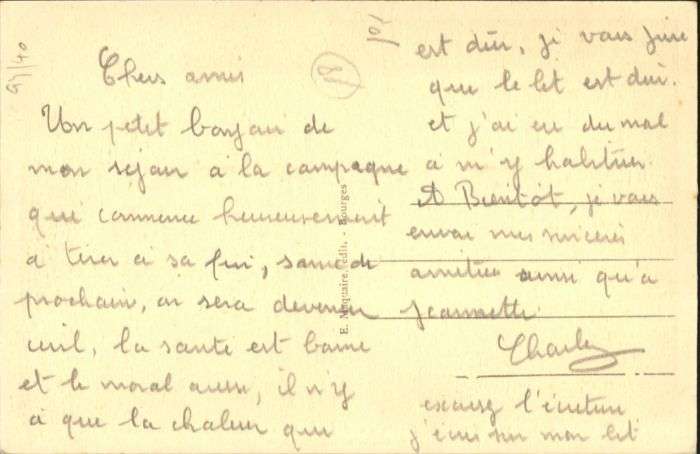 Chers amis
Un petit bonjour de
mon séjour à la campagne
qui commence heureusement
à tirer à sa fin, samedi
prochain, on sera devenu
civil, la santé est bonne
et le moral aussi, il n'y
a que la chaleur qui
est dur, je vous jure
que le lit est dur.
et j'ai eu du mal
à m'y habituer
A Bientôt, je vous
envoi mes sincères
amitiés ainsi qu'à
Jeannette
Charley
excusez l'écriture
j'écris sur mon lit
E. Maquaire, édit. - Bourges